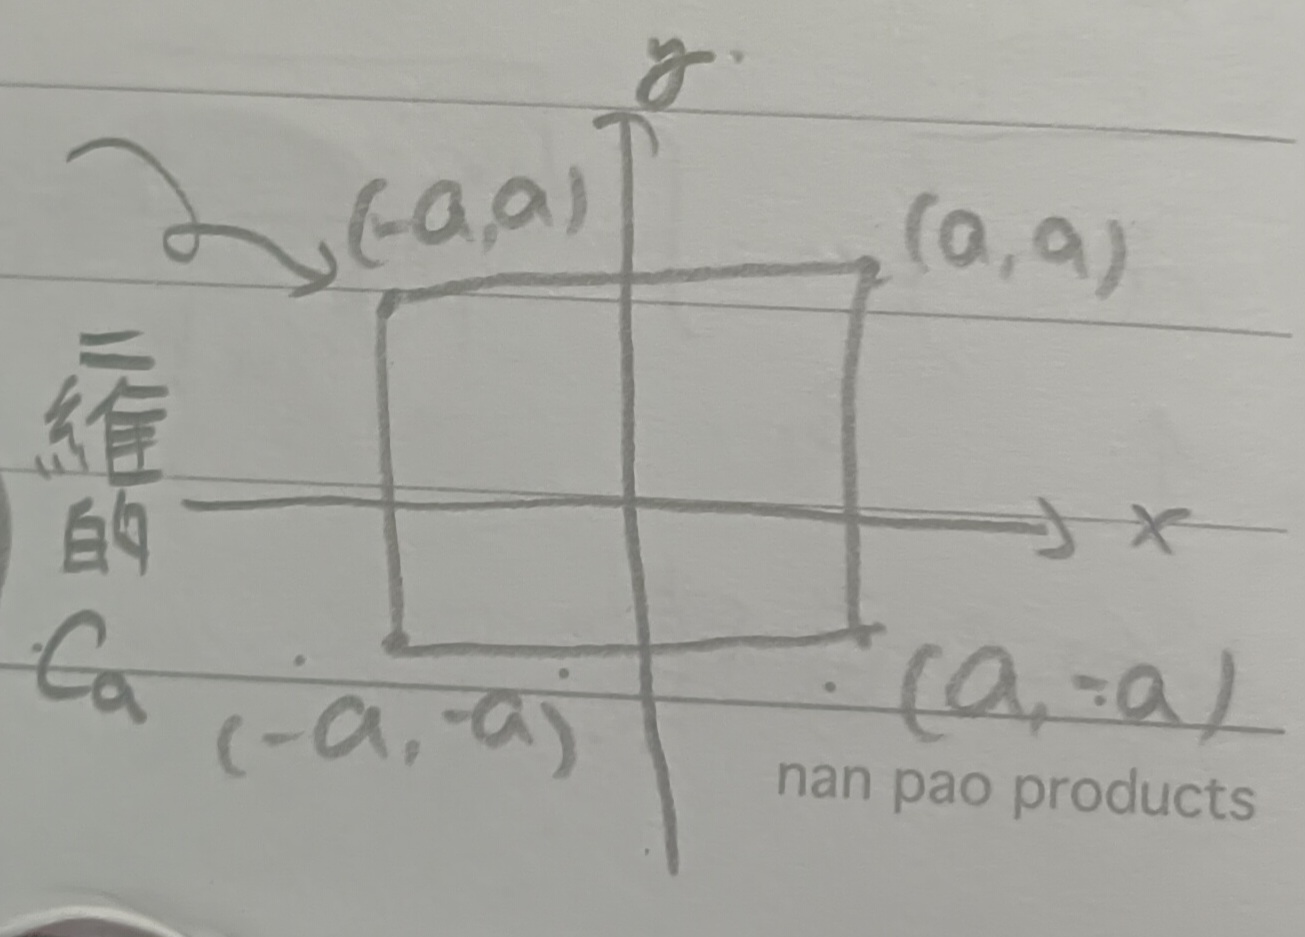 y
(-a,a)
(a,a)
二
維
的
Ca
x
(-a,-a)
(a,-a)
nan pao products